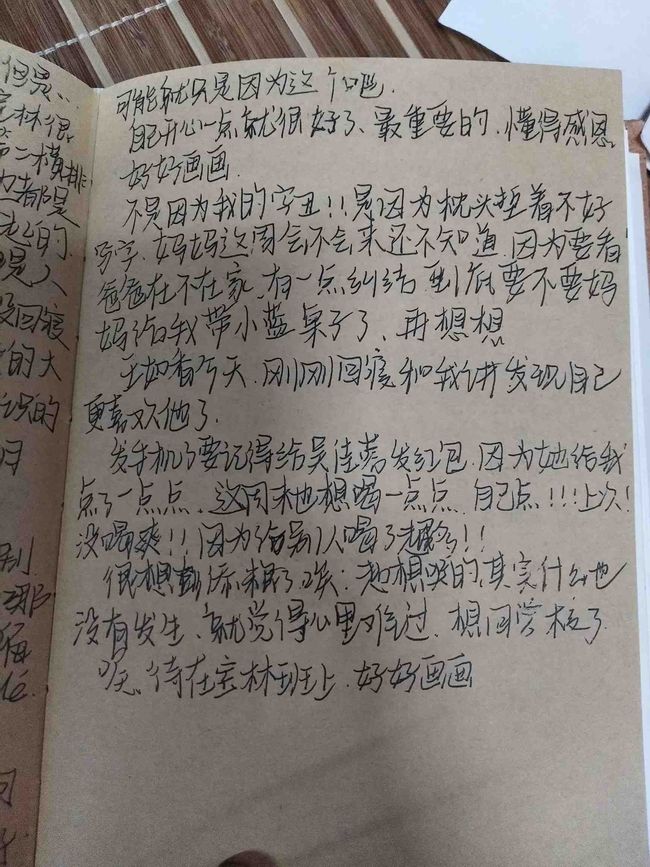 但是...
林很
第二横排
都是
的
人
没回寝
的大
识的
月
别
那
可能就只是因为这个吧.
自己开心一点就很好了、最重要的、懂得感恩
好好画画.
不是因为我的字丑!!是因为枕头垫着不好
写字.妈妈这周会不会来还不知道.因为要看
爸爸在不在家.有一点纠结.到底要不要妈
妈给我带小蓝桌子了、再想想
王如香今天.刚刚回寝和我讲发现自己
更喜欢他了.
发手机了要记得给吴佳蓉发红包.因为她给我
点了一点点.这周末也想喝一点点.自己点!!!上次!
没喝爽!!因为给别人喝了!!
很想 唉:想哭的.其实什么也
没有发生.就觉得心里难过.想回学校了.
唉.待在林班上.好好画画